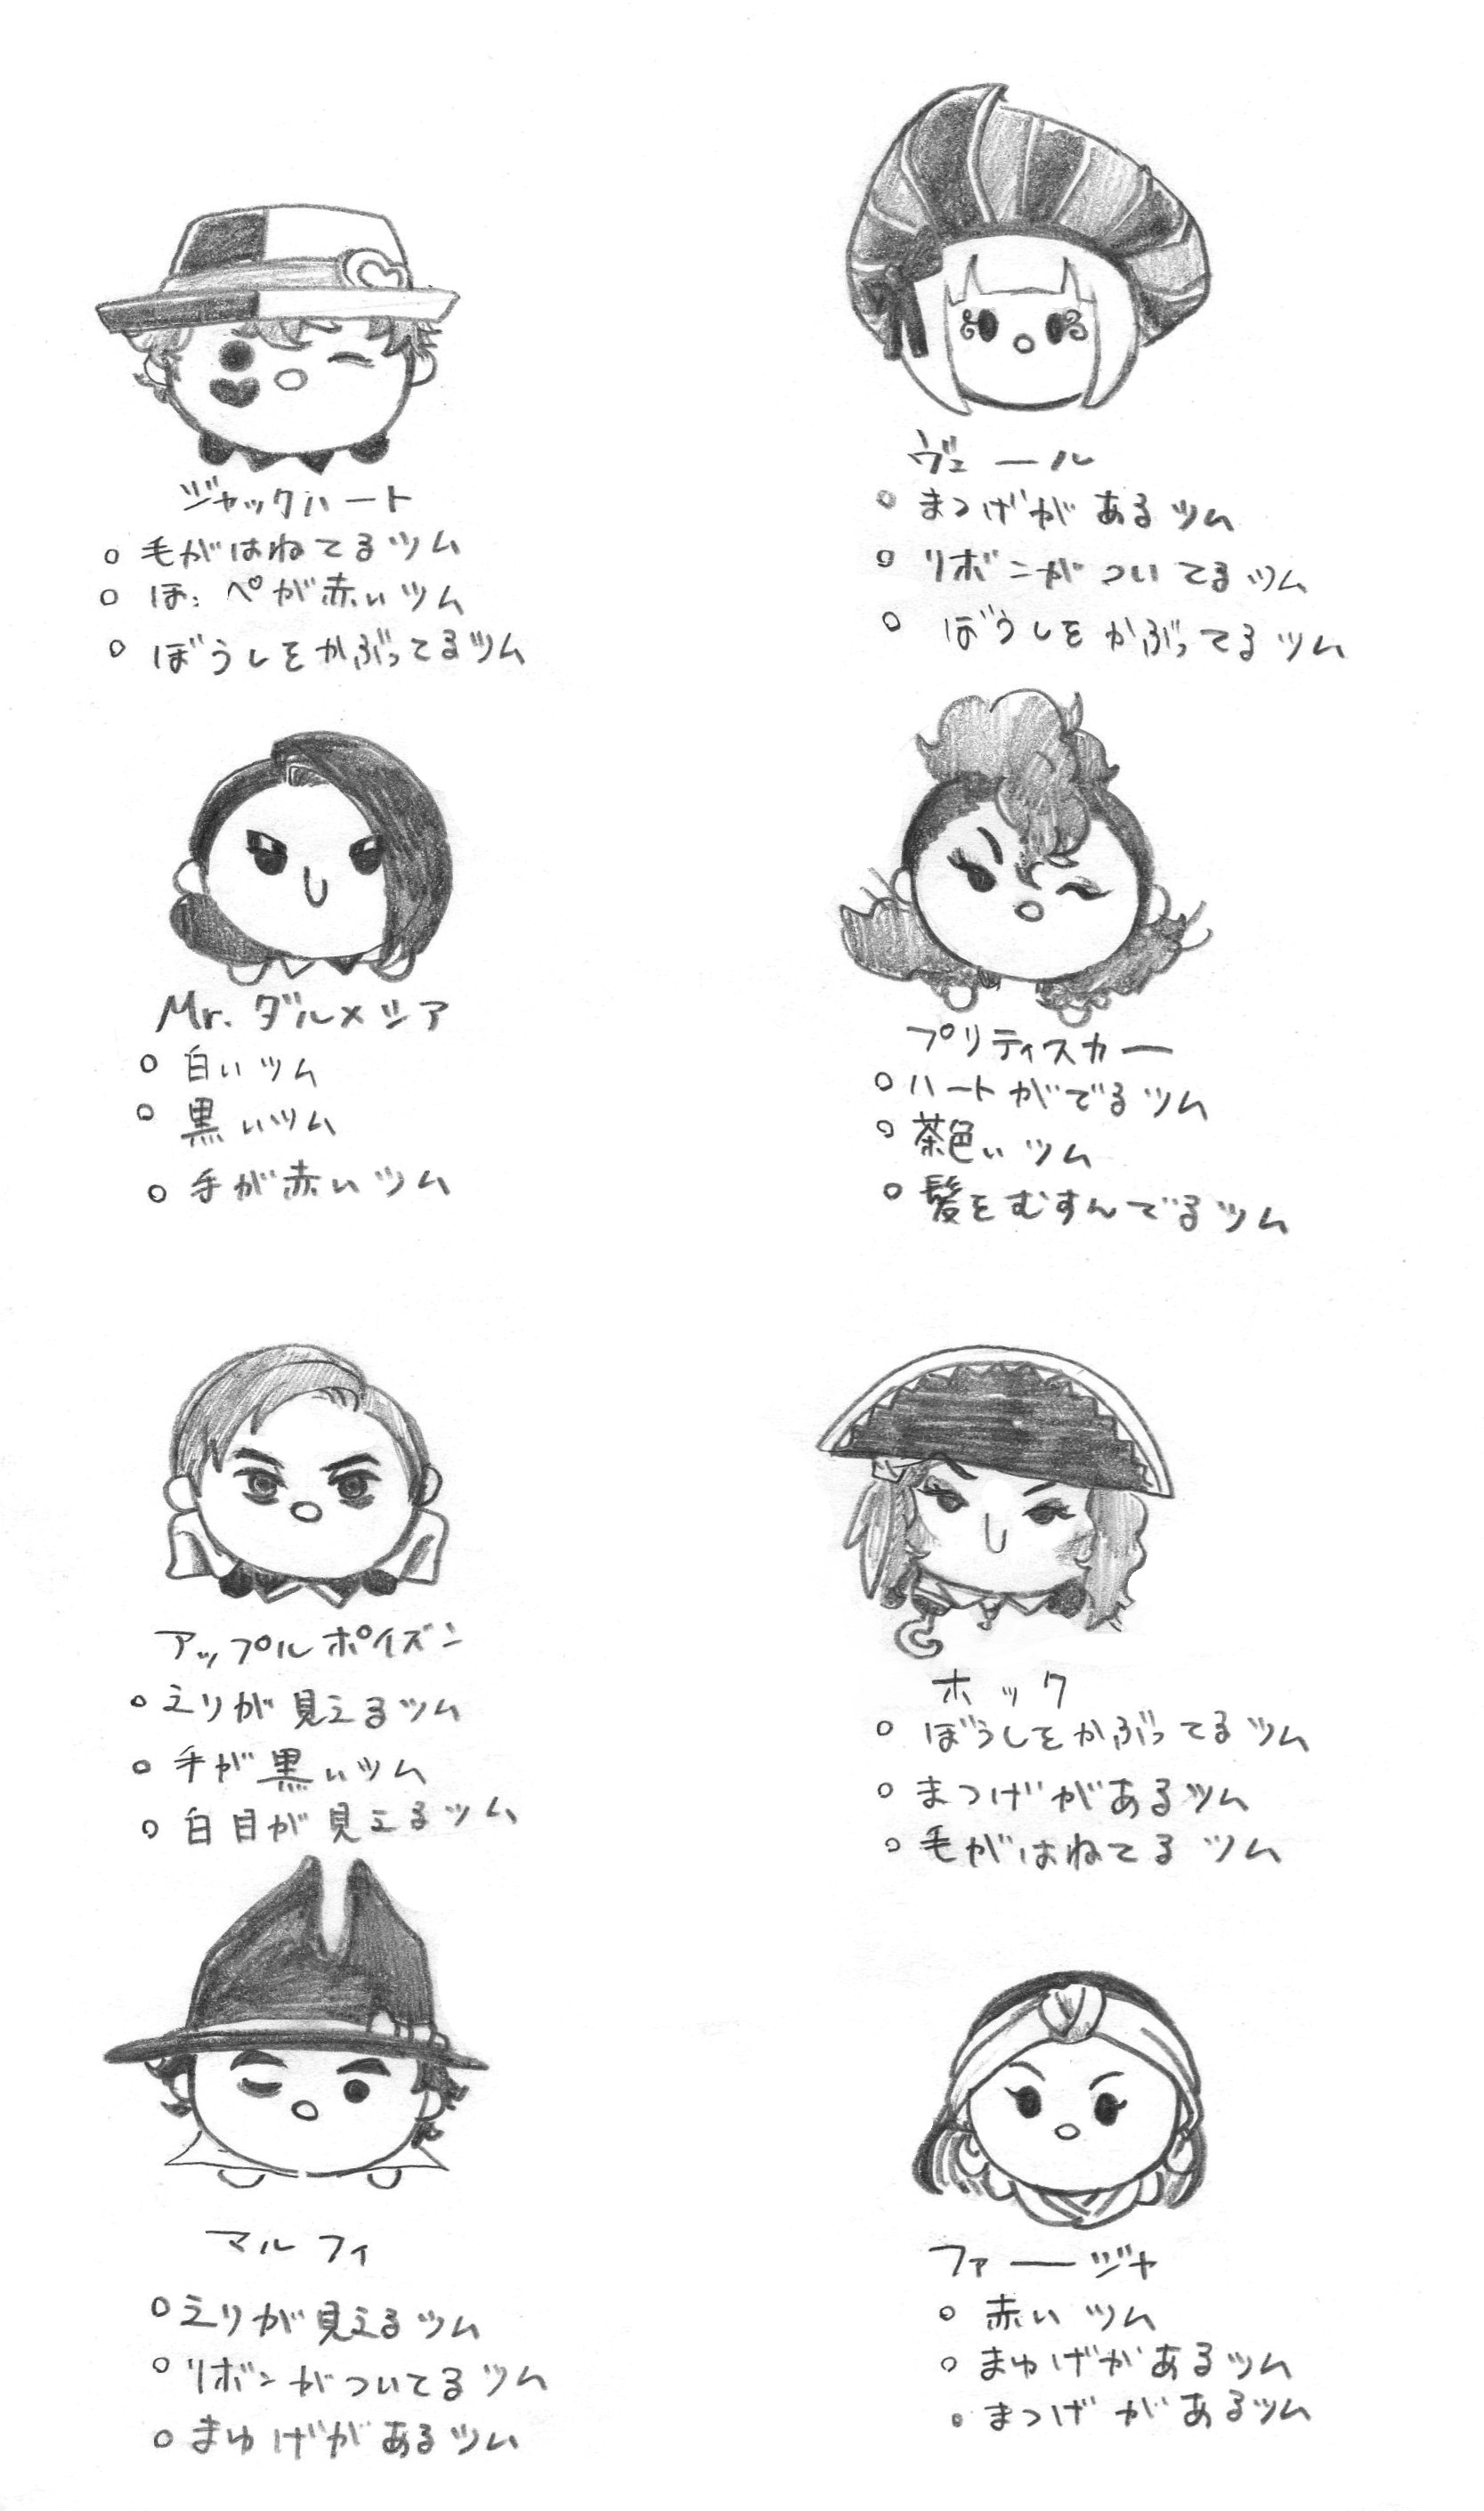 ジャックハート
○ 毛がはねてるツム
○ ほっぺが赤いツム
○ ぼうしをかぶってるツム
ヴェール
○ まつげがあるツム
○ リボンがついてるツム
○ ぼうしをかぶってるツム
Mr. ダルメシア
○ 白いツム
○ 黒いツム
○ 手が赤いツム
プリティスカー
○ ハートがでるツム
○ 茶色いツム
○ 髪をむすんでるツム
アップルポイズン
○ えりが見えるツム
○ 手が黒いツム
○ 白目が見えるツム
ホック
○ ぼうしをかぶってるツム
○ まつげがあるツム
○ 毛がはねてるツム
マルフィ
○ えりが見えるツム
○ リボンがついてるツム
○ まゆげがあるツム
ファージャ
○ 赤いツム
○ まゆげがあるツム
○ まつげがあるツム